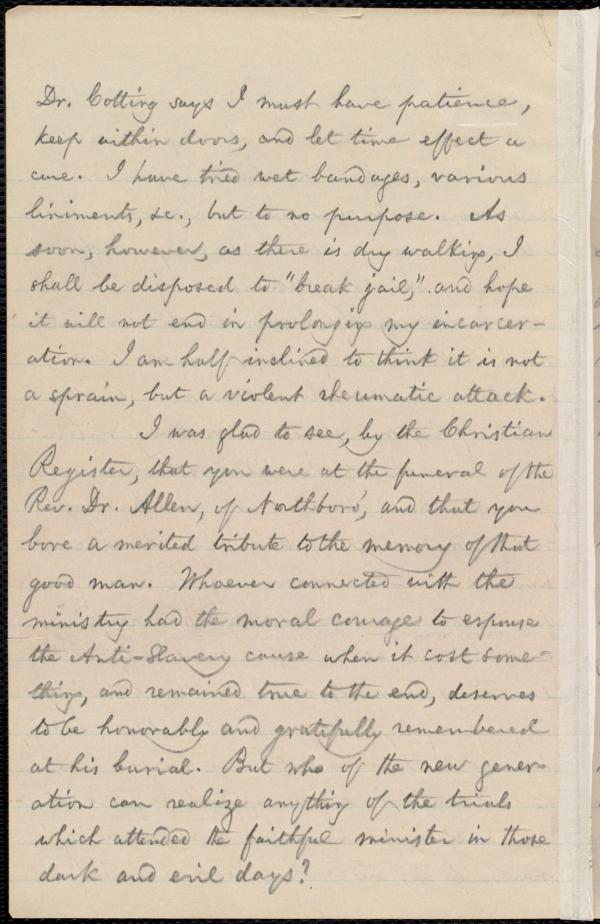 Dr. Cotting says I must have patience,
keep within doors, and let time effect a
cure. I have tried wet bandages, various
liniments, &c., but to no purpose. As
soon, however, as there is dry walking, I
shall be disposed to "break jail," and hope
it will not end in prolonging my incarcer-
ation. I am half inclined to think it is not
a sprain, but a violent rheumatic attack.
I was glad to see, by the Christian
Register, that you were at the funeral of the
Rev. Dr. Allen, of Northboro', and that you
bore a merited tribute to the memory of that
good man. Whoever connected with the
ministry had the moral courage to espouse
the Anti-Slavery cause when it cost some-
thing, and remained true to the end, deserves
to be honorably and gratefully remembered
at his burial. But who of the new gener-
ation can realize anything of the trials
which attended the faithful minister in those
dark and evil days?